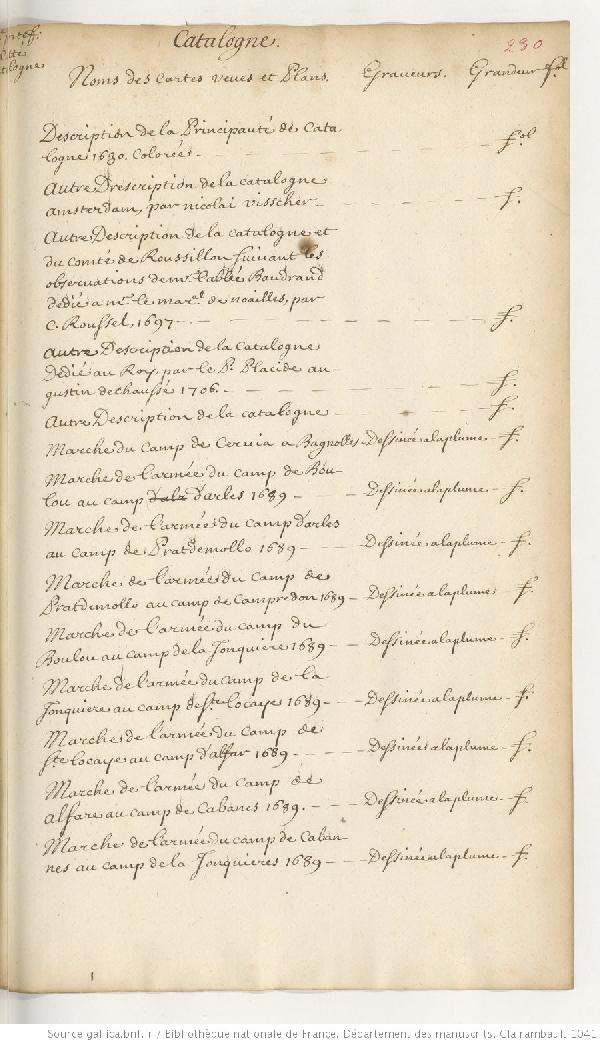 Catalogne.
230
Noms des Cartes veues et Plans. Graveurs. Grandeur
Description de la Principauté de Cata
logne 1630. Coloreé. - - - - - fol
Autre Drescription de la catalogne
amsterdam, par nicolai visscher - - - - - f.
Autre Description de la catalogne et
du comté de Roussillon suivant les
observations de mr. l'abbé Baudrand
dedié a mr. le maral. de noailles, par
C. Roussel, 1697. - - - - - f.
Autre Description de la Catalogne
Dedié au Roy par le P. Placide au-
gustin dechaussé 1706. - - - - - f.
Autre Description de la catalogne - - - - f.
Marche du Camp de Cervia a Bagnolles - Dessinée a la plume - f.
Marche de l'armée du camp de Bou-
lou au camp d'arles 1689 - - - Dessinée a la plume - f.
Marche de l'armée du camp d'arles
au camp de Pratdemollo 1689 - - - Dessinée a la plume - f.
Marche de l'armée du Camp de
Pratdemollo au camp de Campredon 1689 - Dessinée a la plume - f.
Marche de l'armée du camp du
Boulou au camp de la Jonquiere 1689 - - Dessinée a la plume - f.
Marche de l'armée du camp de la
Jonquiere au camp de ste locaye 1689 - - - Dessinée a la plume - f.
Marche de l'armée du camp de
ste locaye au camp d'alfar 1689 - - - - Dessinée a la plume - f.
Marche de l'armée du Camp de
alfare au camp de Cabanes 1689. - - - Dessinée a la plume - f.
Marche de l'armée du camp de Caban-
nes au camp de la Jonquieres 1689 - - - Dessinée a la plume - f.
Source gallica.bnf.fr / Bibliothèque nationale de France. Département des manuscrits. Clairambault 1041